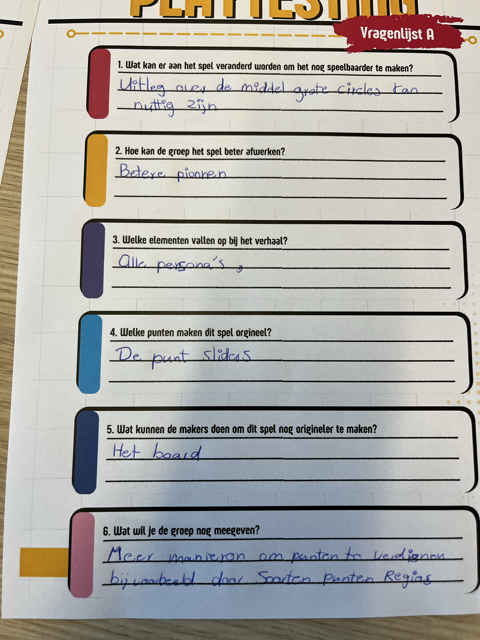 PLAYTESTING
Vragenlijst A
1. Wat kan er aan het spel veranderd worden om het nog speelbaarder te maken?
Uitleg over de middel grote circles kan
nuttig zijn
2. Hoe kan de groep het spel beter afwerken?
Betere pionnen
3. Welke elementen vallen op bij het verhaal?
Alle persona's,
4. Welke punten maken dit spel orgineel?
De punt sliders
5. Wat kunnen de makers doen om dit spel nog origineler te maken?
Het board
6. Wat wil je de groep nog meegeven?
Meer manieren om punten te verdienen
bijvoorbeeld door Soorten punten Regios